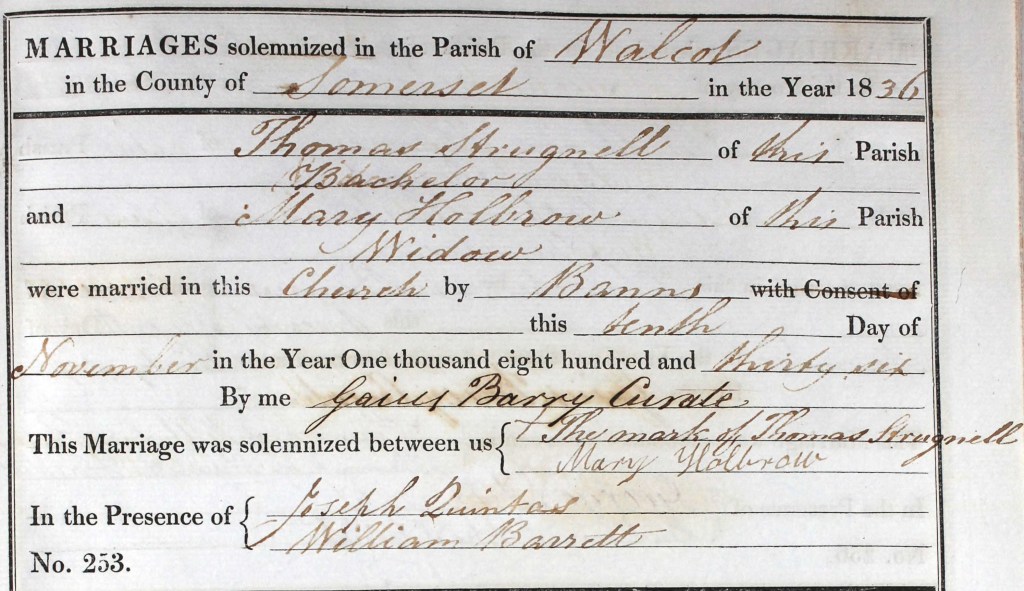 MARRIAGES solemnized in the Parish of Walcot
in the County of Somerset in the Year 1836
Thomas Strugnell of this Parish
Bachelor
and Mary Holbrow of this Parish
Widow
were married in this Church by Banns with Consent of
this tenth Day of
November in the Year One thousand eight hundred and thirty six
By me Gaius Barry Curate
This Marriage was solemnized between us { + The mark of Thomas Strugnell
Mary Holbrow
In the Presence of { Joseph Quintas
William Barrett
No. 253.